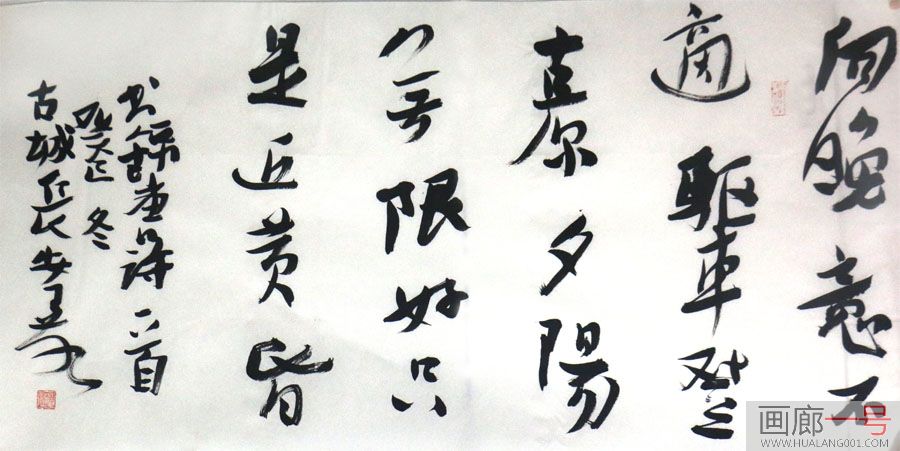 向晚意不
適驅車登
古原夕陽
无限好只
是近黄昏
唐詩一首
癸巳冬
古城長安王
画廊一号
WWW.HUALANG001.COM